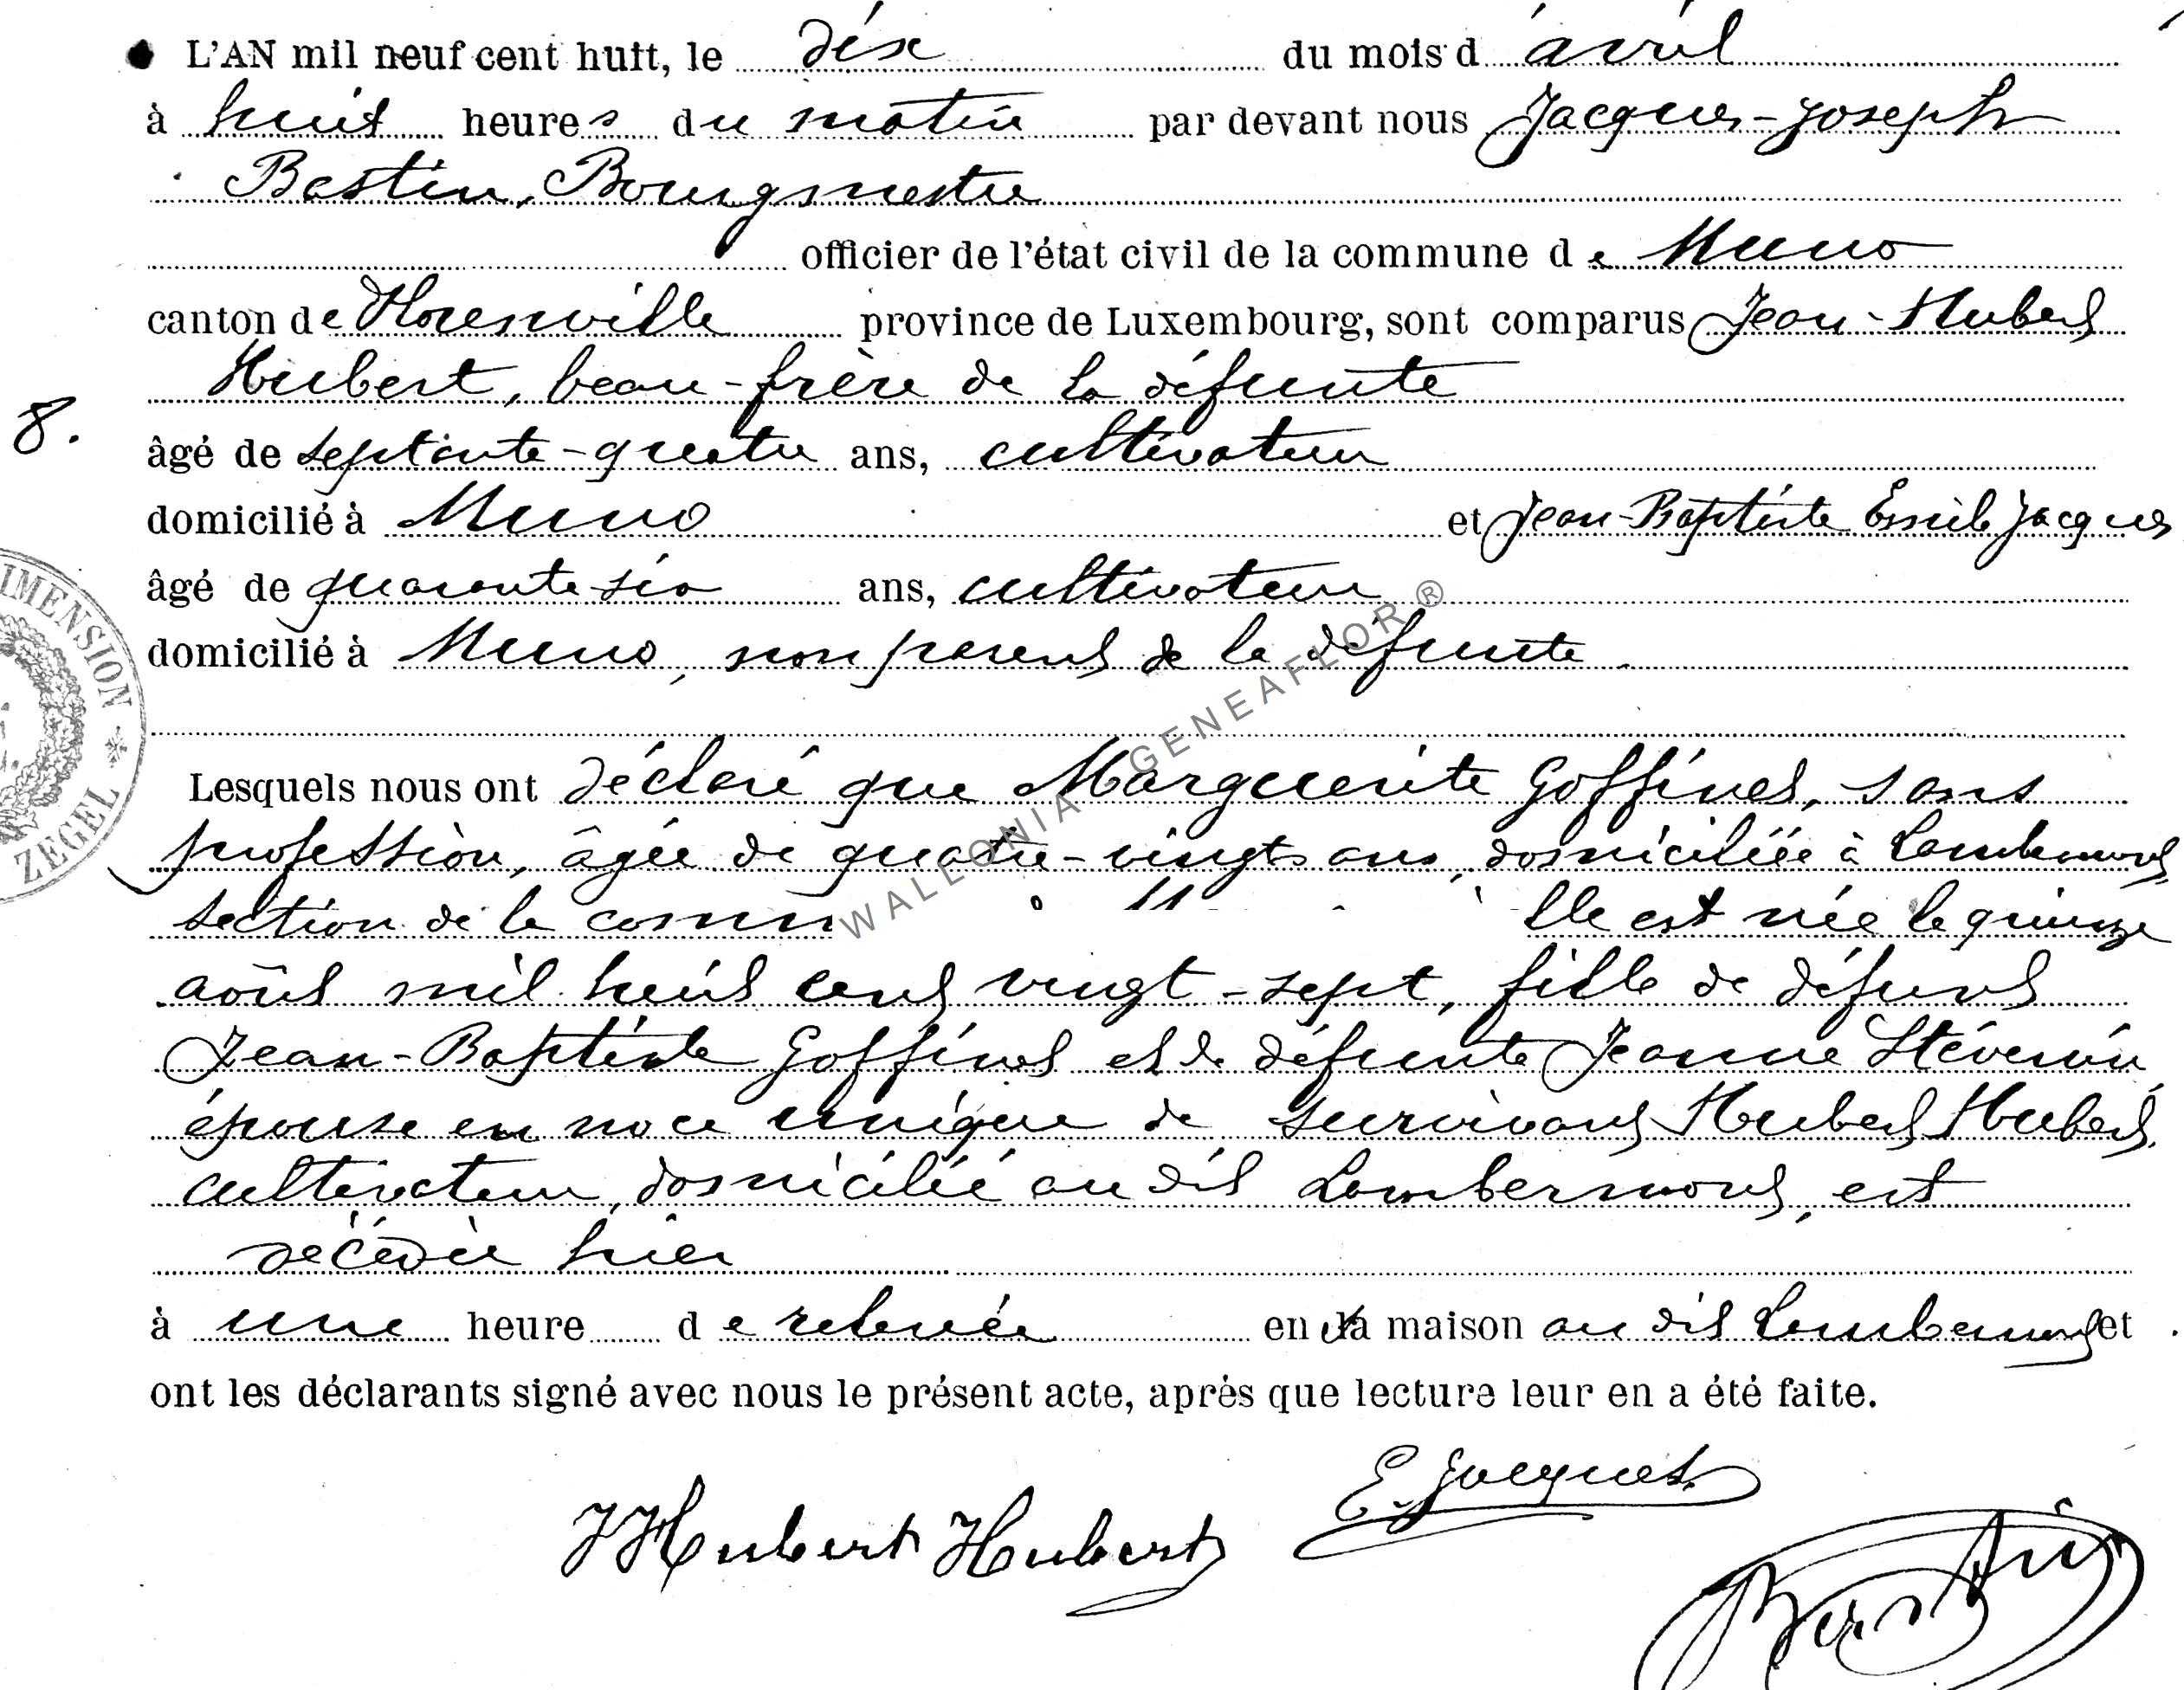 L'AN mil neuf cent huit, le dix du mois d avril
à huit heures du matin par devant nous Jacques-Joseph
Bastin, Bourgmestre
officier de l'état civil de la commune de Muno
canton de Florenville province de Luxembourg, sont comparus Jean-Hubert
Hubert, beau-frère de la défunte
8.
âgé de septante-quatre ans, cultivateur
domicilié à Muno et Jean-Baptiste Emile Jacques
âgé de quarante six ans, cultivateur
domicilié à Muno, non parent de la défunte.
Lesquels nous ont déclaré que Marguerite Goffinet, sans
profession, âgée de quatre-vingts ans, domiciliée à Lambermont
section de la comm lle est née le quinze
août mil huit cent vingt-sept, fille de défunt
Jean-Baptiste Goffinet et de défunte Jeanne Stévenin
épouse en noce unique de survivant Hubert Hubert,
cultivateur, domicilié au dit Lambermont, est
décédée hier
à une heure de relevée en la maison au dit Lambermont et
ont les déclarants signé avec nous le présent acte, après que lecture leur en a été faite.
E. Jacques
JHubert Hubert
Bastin
DIMENSION * ZEGEL
WALLONIA GENEAFLOR ®